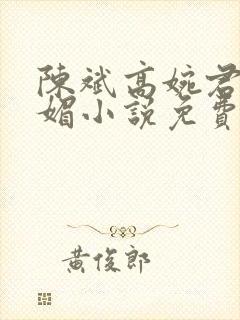 陳斌高婉君
媚小說免費
黃俊郎